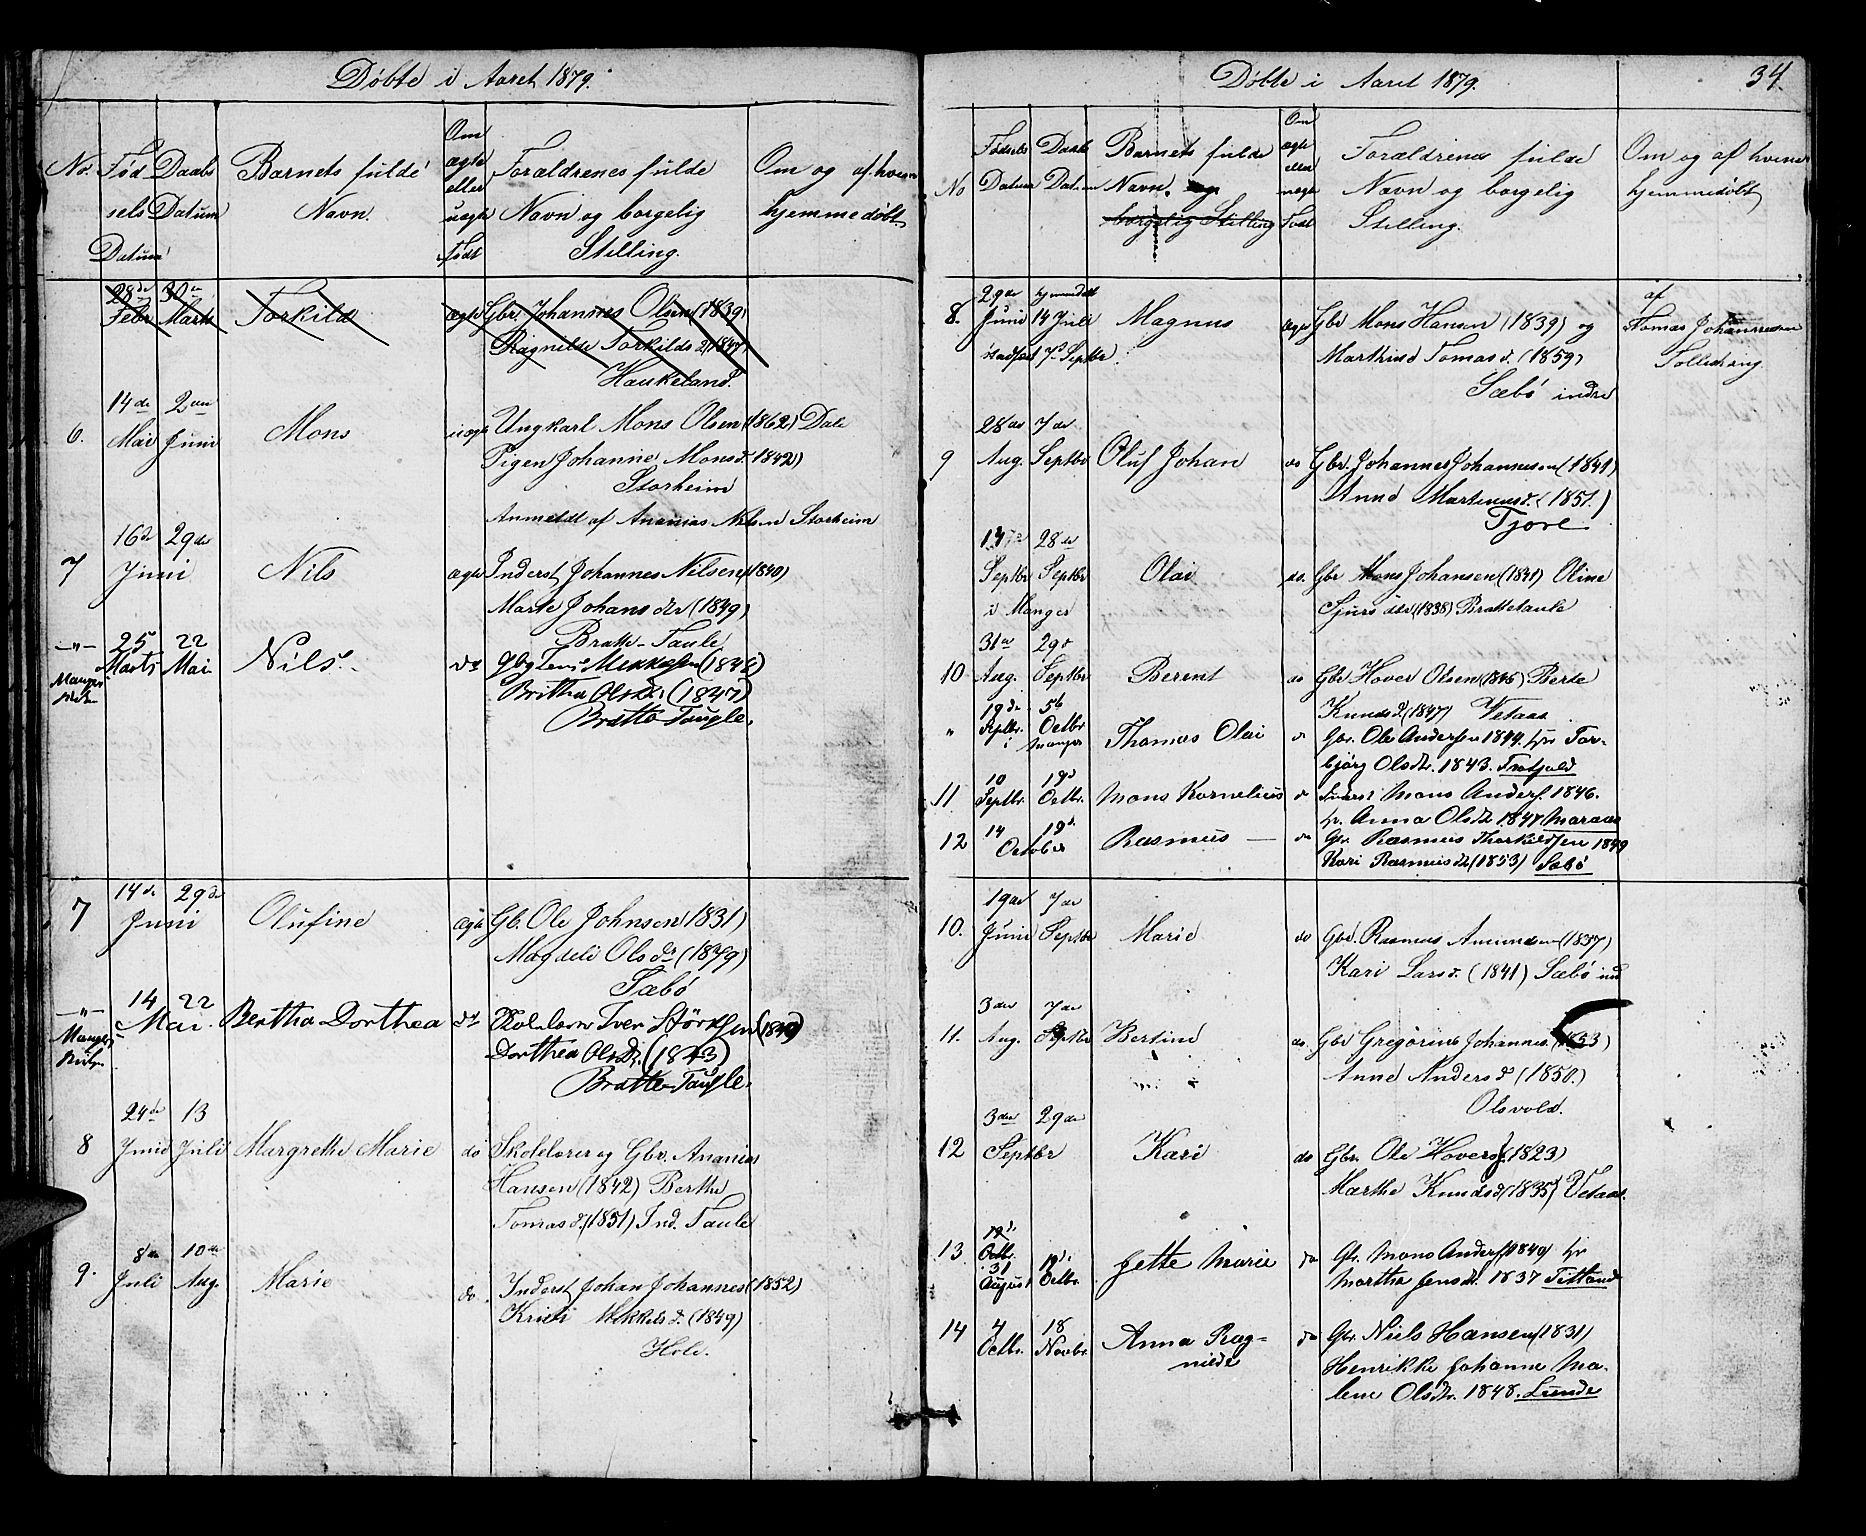 Døbte i Aaret 1879.
No. Fød
sels
Datum
Daabs
Datum
Barnets fulde
Navn.
Om
ægte
eller
uægte
Født
Forældrenes fulde
Navn og borgelig
Stilling.
Om og af hvem
hjemmedøbt
28de Febr 30te Marts Torkild ægte Gbr Johannes Olsen (1839)
Ragnilde Torkilds d (1847)
Haukeland.
6. 14de Mai 2den Juni Mons uægte Ungkarl Mons Olsen (1862) Dale
Pigen Johanne Monsd. 1842)
Storheim
Anmeldt af Ananias Nilsen Storheim
7 16de 29de Juni Nils ægte Inderst Johannes Nilsen (1840)
Marte Johans dtr (1849)
Bratte-Taule
-"- Manger Kirke 25 Marts 22 Mai Nils. do Gbr Jens Mikkelsen (1846)
Britha Olsdr. (1847)
Bratte Taugle.
7 14de 29de Juni Olufine ægte Gb. Ole Johnsen 1831)
Magdeli Olsdr (1839)
Sæbø
-"- Manger Kirke 14 22 Mai. Bertha Dorthea do Skolelærer Iver Størksen (1849)
Dorthea Olsdr. (1843)
Bratte-Taugle.
8 24de Juni 13 Juli Margrethe Marie do Skolelærer og Gbr. Ananias
Hansen (1842) Berthe
Tomasd. (1851) Ind. Taule
9. 8de Juli 10de Aug. Marie do. Inderst Johan Johannes (1852)
Kristi Mikkelsd. (1849)
Hole.
Døbte i Aaret 1879.
34.
No
Fødsels
Datum
Daabs
Datum
Barnets fulde
Navn. og
borgelig Stilling
Om
ægte
eller
uægte
Født
Forældrenes fulde
Navn og borgelig
Stilling.
Om og af hvem
hjemmedøbt
8. 29de Juni hjemmedøbt 14 Juli Magnus ægte Gbr Mons Hansen (1839) og af Tomas Johannessen
stadfæst 7de Septbr Marthine Tomas d. (1859) Tolleknag
Sæbø indre
9 28de Aug. 7de Septbr Oluf Johan do Gbr. Johannes Johannesen (1841)
Anne Martinusd. (1851.)
Tjore
28de
Septbr Septbr Olai do. Gbr Mons Johansen (1841) Oline
i Manger Sjurs dtr (1838) Brattetaule
10 31te Aug. 29de Septbr Berent do Gbr Hover Olsen (1846) Berte
Knuds d (1847) Vetaas
" 19de Septbr. 5te Octbr Thomas Olai do Gbr. Ole Andersen 1844. hr Tor-
i Manger bjørg Olsdtr. 1843. Trotfjeld
11 10 Septbr. 19d Octbr. Mons Kornelius do Inderst Mons Anders. 1846.
hr. Anna Olsdtr 1847 Maraas
12 14 19d. October Rasmus — do Gbr. Rasmus Thorkildsen 1849
Kari Rasmusdtr (1853) Sæbø
10. 19de Juni 7de Septbr Marie do Gbr. Rasmus Amundsen (1837)
Kari Larsd. (1841) Sæbø ind
11. 3die Aug. 7de Septbr Bertine do. Gbr Gregorius Johannes. (1853)
Anne Anders d (1850.)
Olsvold.
12 3die 29de Septbr Kari do Gbr. Ole Hovers. (1823)
Marthe Knudsd (1835) Vetaas.
13 12d. Octbr. 31 August 19d. Octbr. Jette Marie do Gbr. Mons Anders. (1840) hr
Martha Jensdtr. 1837 Titland
14 4 Octbr. 18 Novbr. Anna Rag-
nilde do Gbr. Niels Hansen (1831)
Henrikke Johanne Ma-
lene Olsdtr. 1848. Lunde